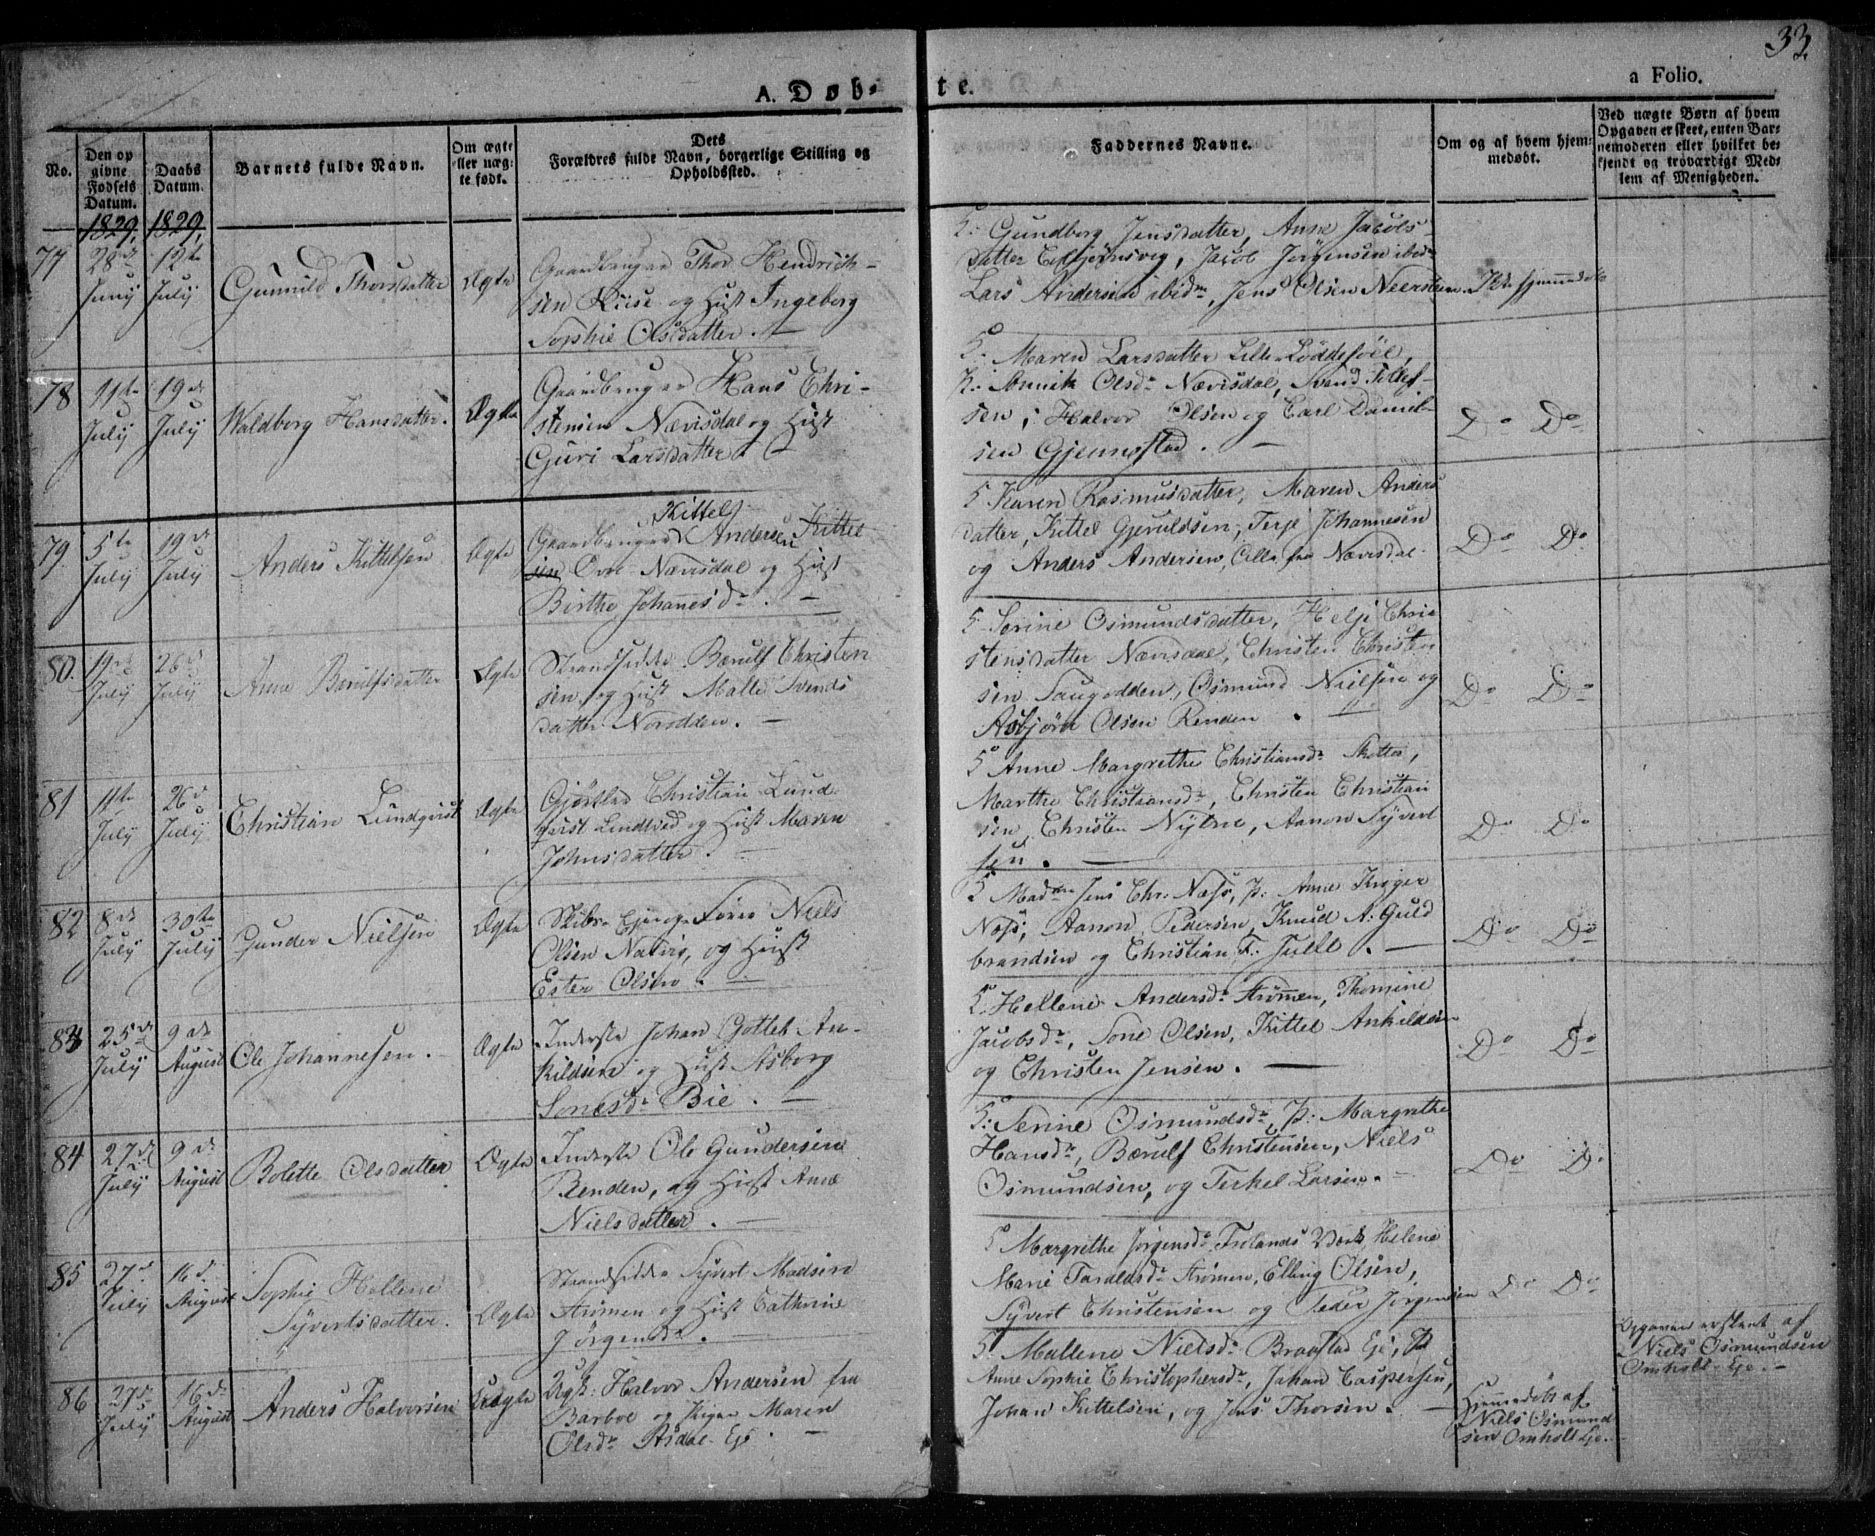 33.
A. Døb-
te.
a Folio.
No.
Den op
givne
Fødsels
Datum.
Daabs
Datum.
Barnets fulde Navn.
Om ægte
eller uæg-
te født.
Dets
Forældres fulde Navn, borgerlige Stilling og
Opholdssted.
Faddernes Navne.
Om og af hvem hjem-
medøbt.
Ved uægte Børn af hvem
Opgaven er skeet, enten Bar-
nemoderen eller hvilket be-
kjendt og troværdigt Med-
lem af Menigheden.
1829, 1829,
77
28de
Juny
12te
July
Gunnild Thorsdatter
Ægte
Gaardbruger Thor Hendrich-
sen Kiise og Hust Ingeborg
Sophie Olsdatter. —
5: Gundborg Jensdatter, Anne Jacobs-
datter Espjernsvig, Jacob Jørgensen ibid
Lars Andersen ibidm, Jens Olsen Neersteen.
Ikke hjemmedøbt
78
11te
July
19de
July
Waldborg Hansdatter.
Ægte
Gaardbruger Hans Chri-
stensen Nævisdal og Hust
Guri Larsdatter. —
5: Maren Larsdatter Lille Løddesøel,
P: Annik Olsdr Nævisdal, Svend Tellef-
sen, Halvor Olsen og Carl Daniel-
sen Gjennestad. —
Do Do
79.
5te
July
19de
July
Anders Kittelsen
Ægte
Kittel
Gaardbruger Andersen Kittel
sen Øvr Nævisdal og Hust
Birthe Johanesdr. —
5 Karen Rasmusdatter, Maren Anders
datter, Kittel Gjeruldsen, Terje Johannesen
og Anders Andersen, Alle fra Nævisdal.
Do Do
80.
19de
July
26de
July
Anne Berulfsdatter
Ægte
Strandsidder Bærulf Christen
sen, og Hust Malle Svends
datter Norodden. —
5 Serine Osmundsdatter, Helje Chri
stensdatter Nævisdal, Christen Christen
sen Saugodden, Osmund Nielsen og
Asbjørn Olsen Renden. —
Do Do
81
11te
July
26d
July
Christian Lundqvist
Ægte
Gjørtler Christian Lund
qvist Lindtved og Hust Maren
Johnsdatter. —
5 Anne Margrethe Christiansdr Kletter,
Marthe Christiansdr, Christen Christian
sen, Christen Nytrø, Aanon Syvert
sen. —
Do Do
82
8de
July
30te
July
Gunder Nielsen
Ægte
Skibs Ejer og Fører Niels
Olsen Natvig, og Hust
Ester Olsen. —
5 Madme Jens Chr: Næss, P: Anne Krøger
Næss, Aanon Pedersen, Knud A: Guld
brandsen og Christian F: Juell. —
Do Do
83
25de
July
9de
August
Ole Johannesen.
Ægte
Inderste Johan Gottleb An-
kildsen og Hust Asborg
Sonesdr Bie. —
5. Hellene Andersdr Strømen, Thomine
Jacobsdr, Sone Olsen, Kittel Ankildsen
og Christen Jensen. —
Do Do
84
27de
July
9de
August
Bolette Olsdatter
Ægte
Inderste Ole Gundersen
Renden, og Hust Anne
Nielsdatter. —
5: Serine Osmundsdr, P: Margrethe
Hansdr, Bærulf Christensen, Niels
Osmundsen, og Terkel Larsen. —
Do Do
85
27de
July
16d.
August
Sophie Hellene
Syvertsdatter.
Ægte
Strandsidder Syvert Madsen
Strømen og Hust Cathrine
Jørgensdr. —
5 Margrethe Jørgensdr Frolands Værk, Helene
Marie Taraldsdr Strømen, Elling Olsen,
Syvert Christensen og Peder Jørgensen
Do Do
86
27de
July
16de
August
Anders Halvorsen
Uægte
Ugft: Halvor Andersen fra
Barboe og Pigen Maren
Olsdr Asdal Eje. —
5. Mallene Nielsdr Braastad Eje, P
Anne Sophie Christophersdr, Johan Caspersen,
Johan Kittelsen, og Jens Thorsen. —
Hjemmedøbt af
Niels Osmund-
sen Omholt Eje.
Opgaven er skeet af
Niels Osmundsen
Omholt Eje. —